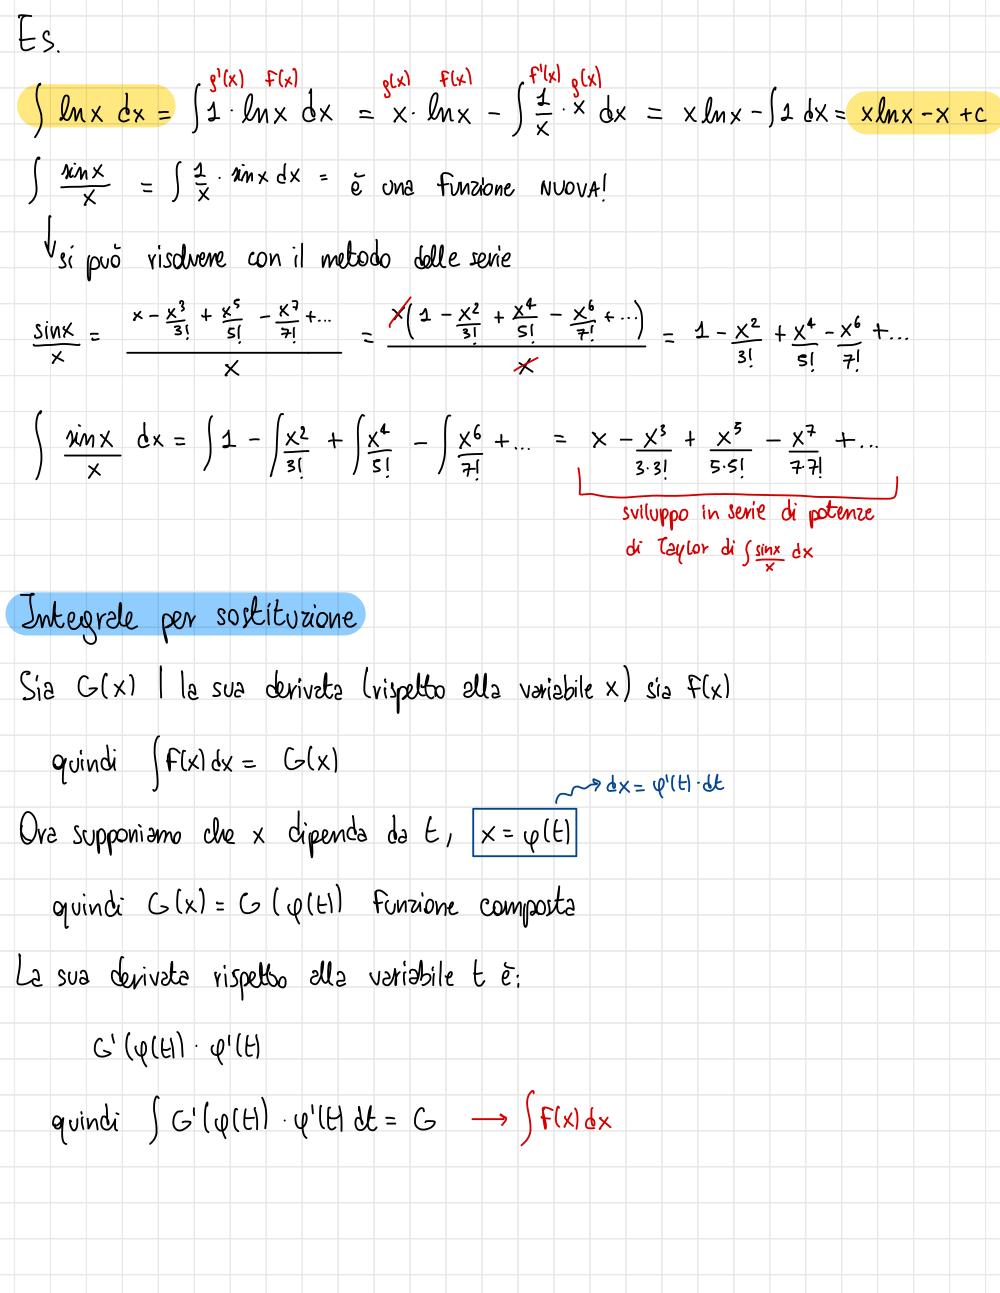 Es.
g'(x) f(x) g(x) f(x) f'(x) g(x)
∫ ln x dx = ∫ 1 · ln x dx = x · ln x - ∫ 1/x · x dx = x ln x - ∫ 1 dx = x ln x - x + c
∫ sin x / x = ∫ 1/x · sin x dx = è una funzione NUOVA!
↓ si può risolvere con il metodo delle serie
sin x / x = (x - x³/3! + x⁵/5! - x⁷/7! + ...) / x = x(1 - x²/3! + x⁴/5! - x⁶/7! + ...) / x = 1 - x²/3! + x⁴/5! - x⁶/7! + ...
∫ sin x / x dx = ∫ 1 - ∫ x²/3! + ∫ x⁴/5! - ∫ x⁶/7! + ... = x - x³/3·3! + x⁵/5·5! - x⁷/7·7! + ...
sviluppo in serie di potenze
di Taylor di ∫ sin x / x dx
Integrale per sostituzione
Sia G(x) | la sua derivata (rispetto alla variabile x) sia f(x)
quindi ∫ f(x) dx = G(x)
→ dx = φ'(t) · dt
Ora supponiamo che x dipenda da t, x = φ(t)
quindi G(x) = G(φ(t)) funzione composta
La sua derivata rispetto alla variabile t è:
G'(φ(t)) · φ'(t)
quindi ∫ G'(φ(t)) · φ'(t) dt = G → ∫ f(x) dx